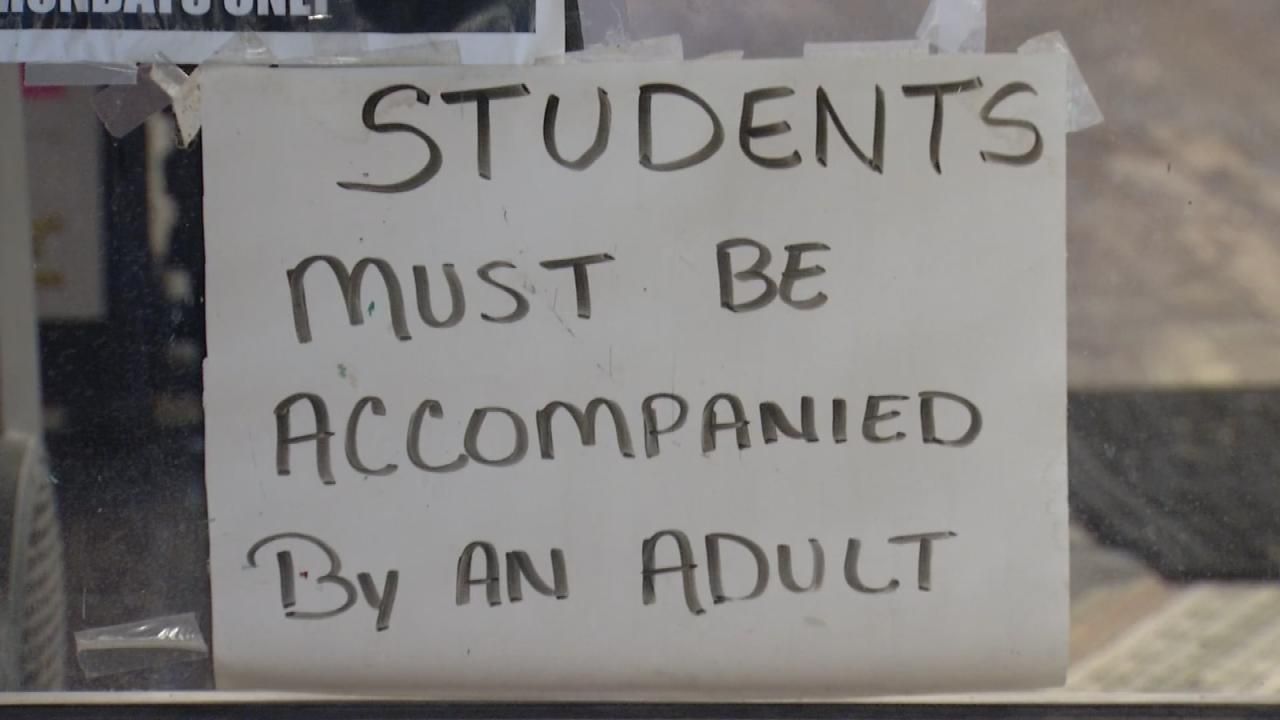 MONDAYS ONLY
STUDENTS
MUST BE
ACCOMPANIED
By AN ADULT